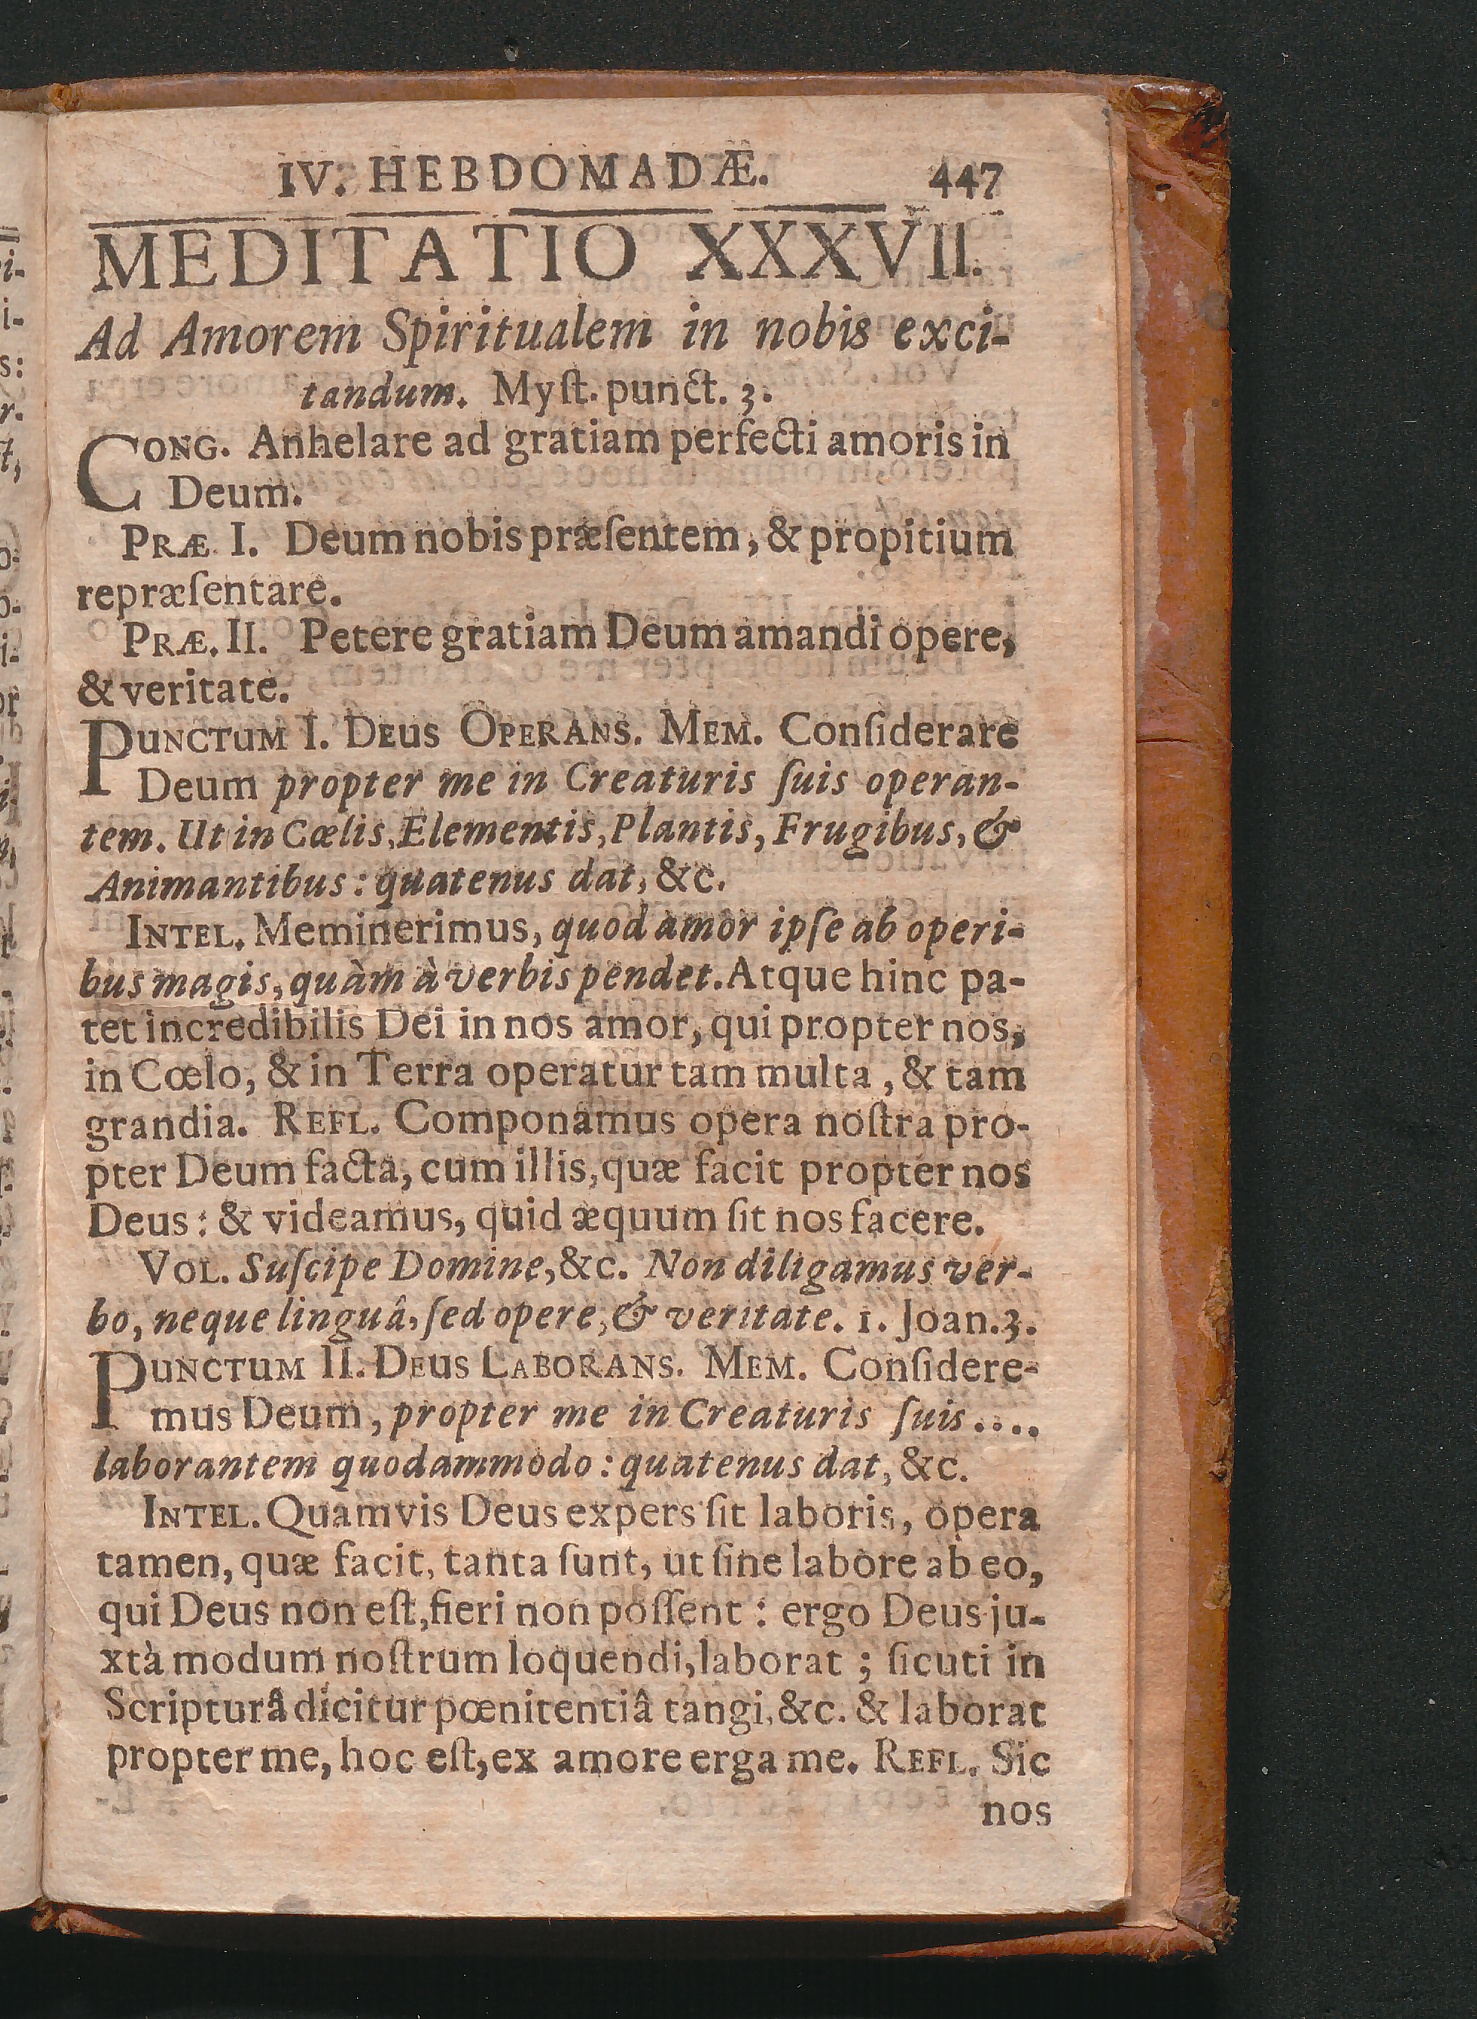 IV. HEBDOMADÆ. 447
MEDITATIO XXXVII.
Ad Amorem Spiritualem in nobis exci-
tandum. Myſt. punct. 3.
CONG. Anhelare ad gratiam perfecti amoris in
Deum.
PRÆ. I. Deum nobis præſentem, & propitium
repræſentare.
PRÆ. II. Petere gratiam Deum amandi opere,
& veritate.
PUNCTUM I. DEUS OPERANS. MEM. Conſiderare
Deum propter me in Creaturis ſuis operan-
tem. Ut in Cœlis, Elementis, Plantis, Frugibus, &
Animantibus: quatenus dat, &c.
INTEL. Meminerimus, quod amor ipſe ab operi-
bus magis, quàm à verbis pendet. Atque hinc pa-
tet incredibilis Dei in nos amor, qui propter nos,
in Cœlo, & in Terra operatur tam multa, & tam
grandia. REFL. Componamus opera noſtra pro-
pter Deum facta, cum illis, quæ facit propter nos
Deus: & videamus, quid æquum ſit nos facere.
VOL. Suſcipe Domine, &c. Non diligamus ver-
bo, neque linguâ, ſed opere, & veritate. 1. Joan. 3.
PUNCTUM II. DEUS LABORANS. MEM. Conſidere-
mus Deum, propter me in Creaturis ſuis....
laborantem quodammodo: quatenus dat, &c.
INTEL. Quamvis Deus expers ſit laboris, opera
tamen, quæ facit, tanta ſunt, ut ſine labore ab eo,
qui Deus non eſt, fieri non poſſent: ergo Deus ju-
xtà modum noſtrum loquendi, laborat; ſicuti in
Scripturâ dicitur pœnitentiâ tangi, &c. & laborat
propter me, hoc eſt, ex amore erga me. REFL. Sic
nos